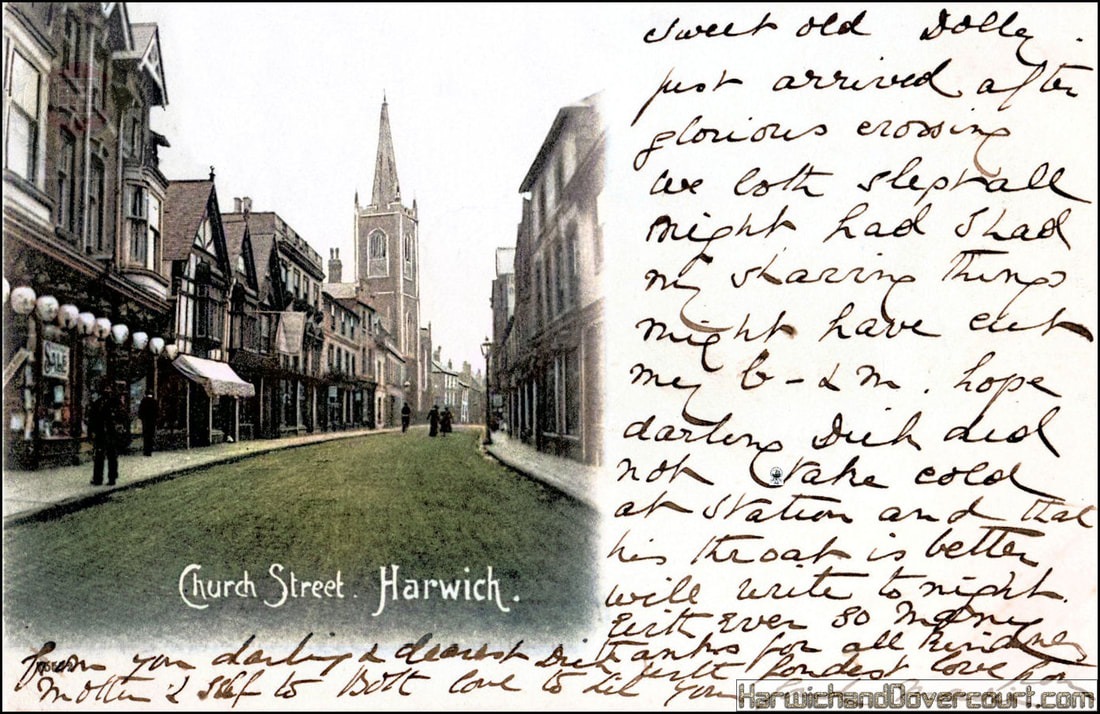 SALE
Church Street. Harwich.
Sweet old Dolly.
just arrived after
glorious crossing
we both slept all
night had I had
my shaving things
might have cut
my b-
hope
darling Dick did
not take cold
at Station and that
his throat is better
will write to night.
With Ever so many
thanks for all kindness
with fondest love
from you darling & dearest Dick
Mother & Self to Both love to Lil
HarwichandDovercourt.com